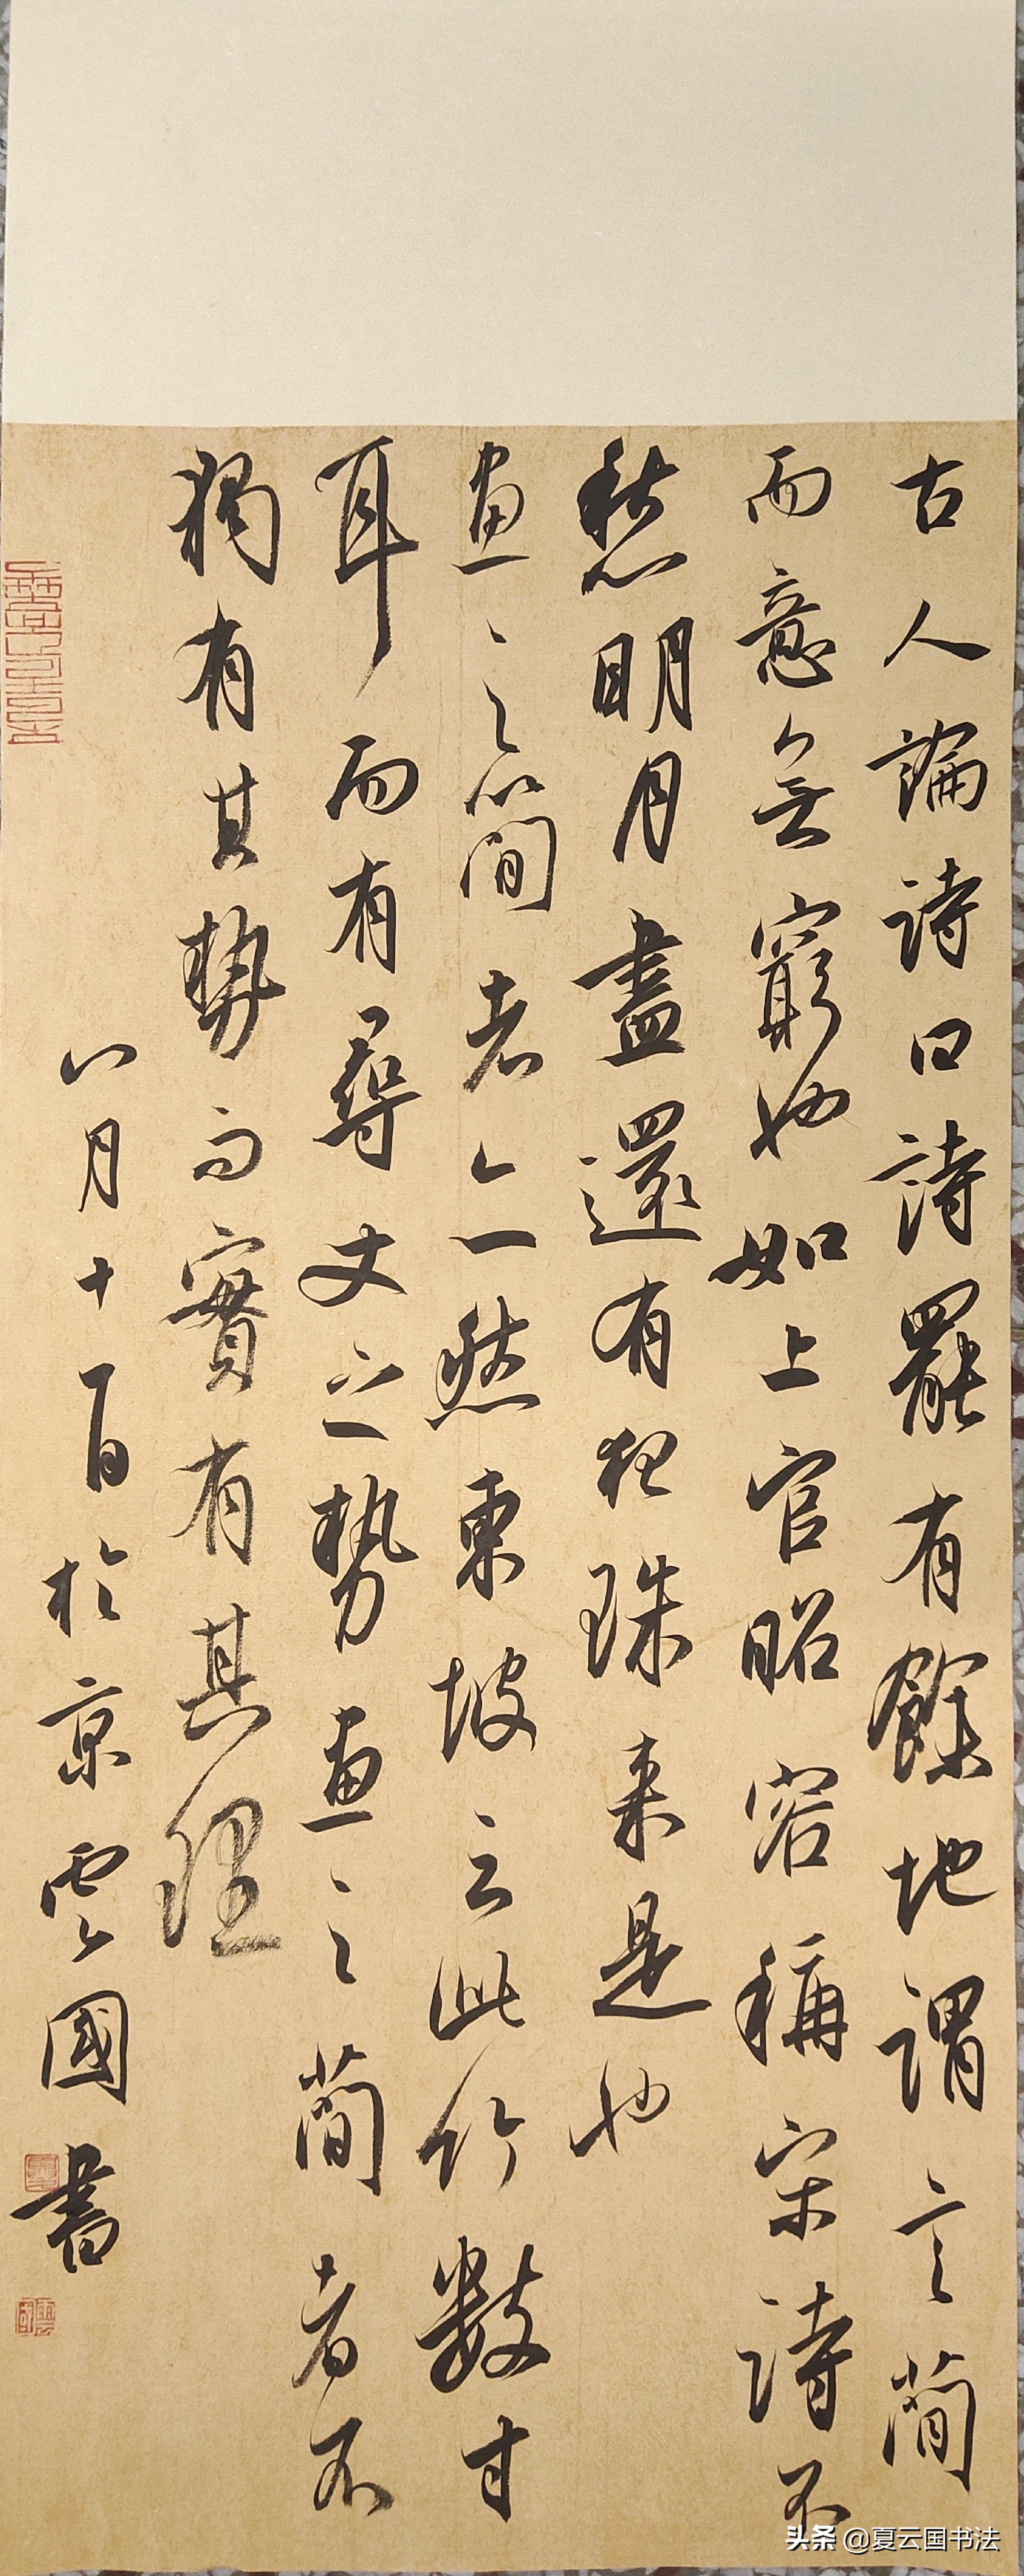 古人論詩曰詩罷有餘地謂言簡
而意無窮也如上官昭容稱宋詩不
愁明月盡還有夜珠來是也
畫之簡者亦然東坡云此竹數寸
耳而有尋丈之勢畫之簡者不
獨有其勢而實有其理
八月十一日於京雲國書
头条 @夏云国书法